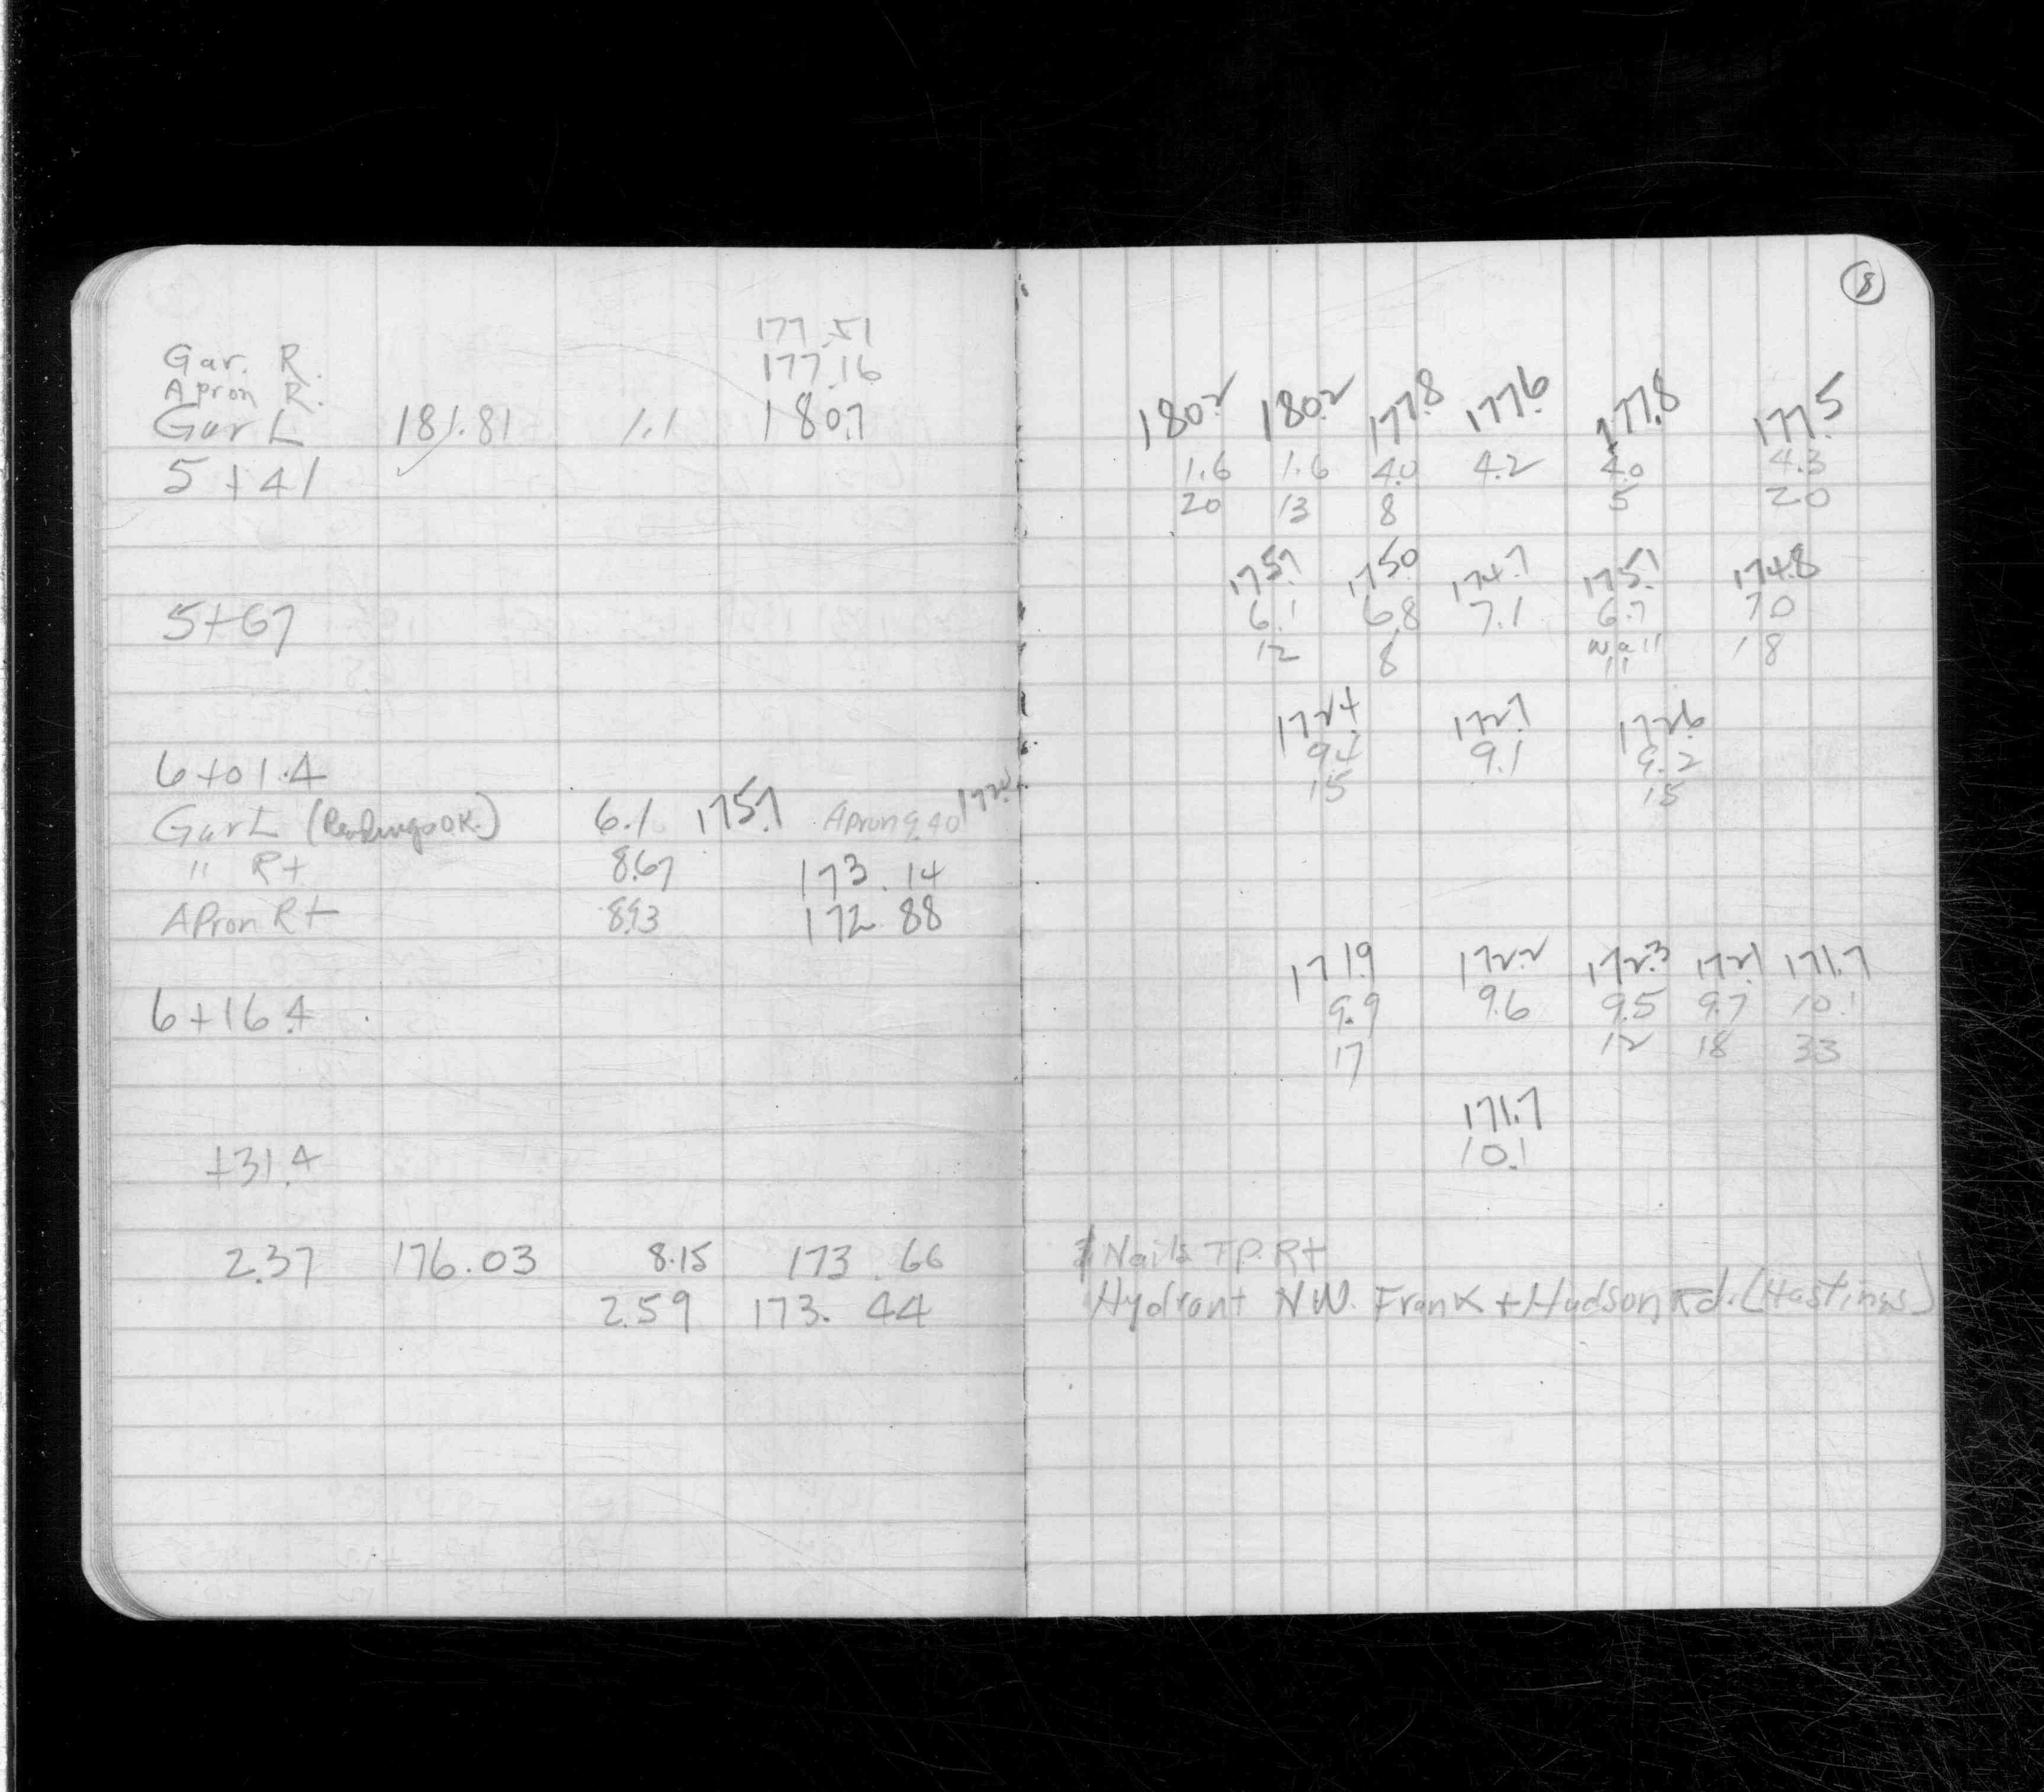 177.51
Gar. R. 177.16
Apron R.
Gar L 181.81 1.1 180.7
5+41
5+67
6+01.4
Gar L (Readings O.K.) 6.1 175.7 Apron 9.40
" Rt 8.67 173.14
APron Rt 8.93 172.88
6+16.4
+31.4
2.37 176.03 8.15 173.66
2.59 173.44
8
180.2 180.2 177.8 177.6 177.8 177.5
1.6 1.6 4.0 4.2 4.0 4.3
20 13 8 5 20
175.7 175.0 174.7 175.1 174.8
6.1 6.8 7.1 6.7 7.0
12 8 wall 18
11
172.4 172.7 172.6
9.4 9.1 9.2
15 15
171.9 172.2 172.3 172.1 171.7
9.9 9.6 9.5 9.7 10.1
17 12 18 33
171.7
10.1
Nails T.P. Rt
Hydrant N.W. Frank + Hudson Rd. (Hastings)